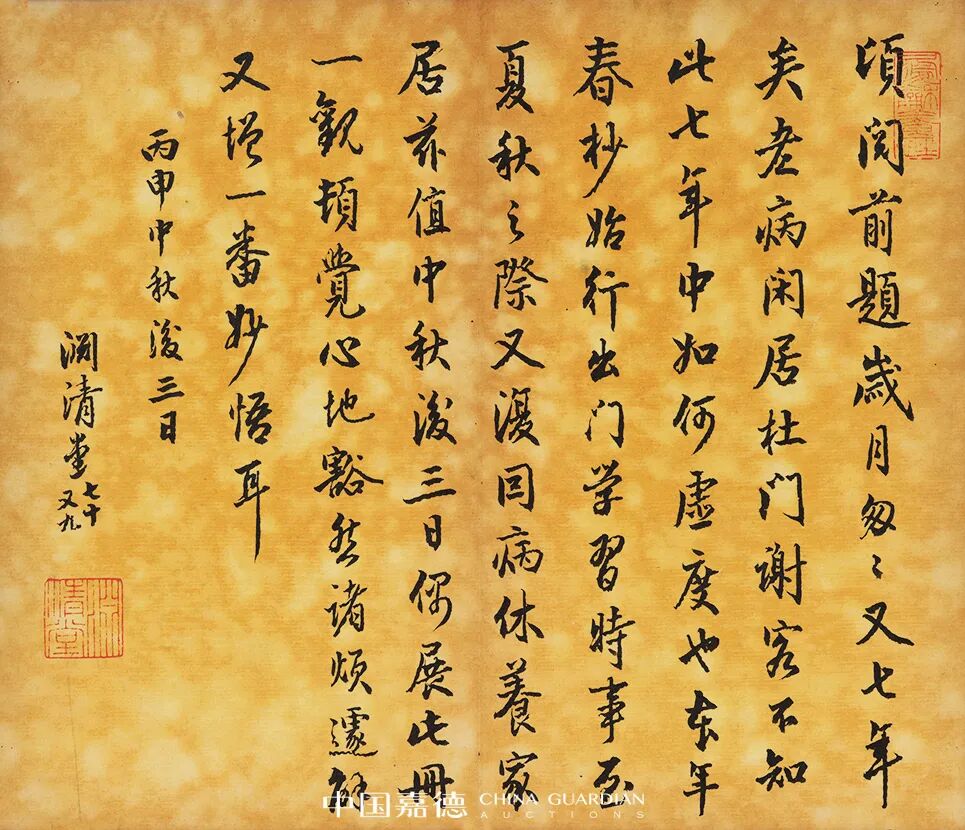 頃閲前題歲月匆〻又七年
矣老病闲居杜门謝客不知
此七年中如何虛度也本年
春杪始行出门学習時事至
夏秋之際又復因病休養家
居茲值中秋後三日偶展此冊
一觀頓覺心地豁然諸煩遽解
又增一番妙悟耳
丙申中秋後三日
淵清堂七十又九
清堂
中国嘉德 CHINA GUARDIAN
AUCTIONS